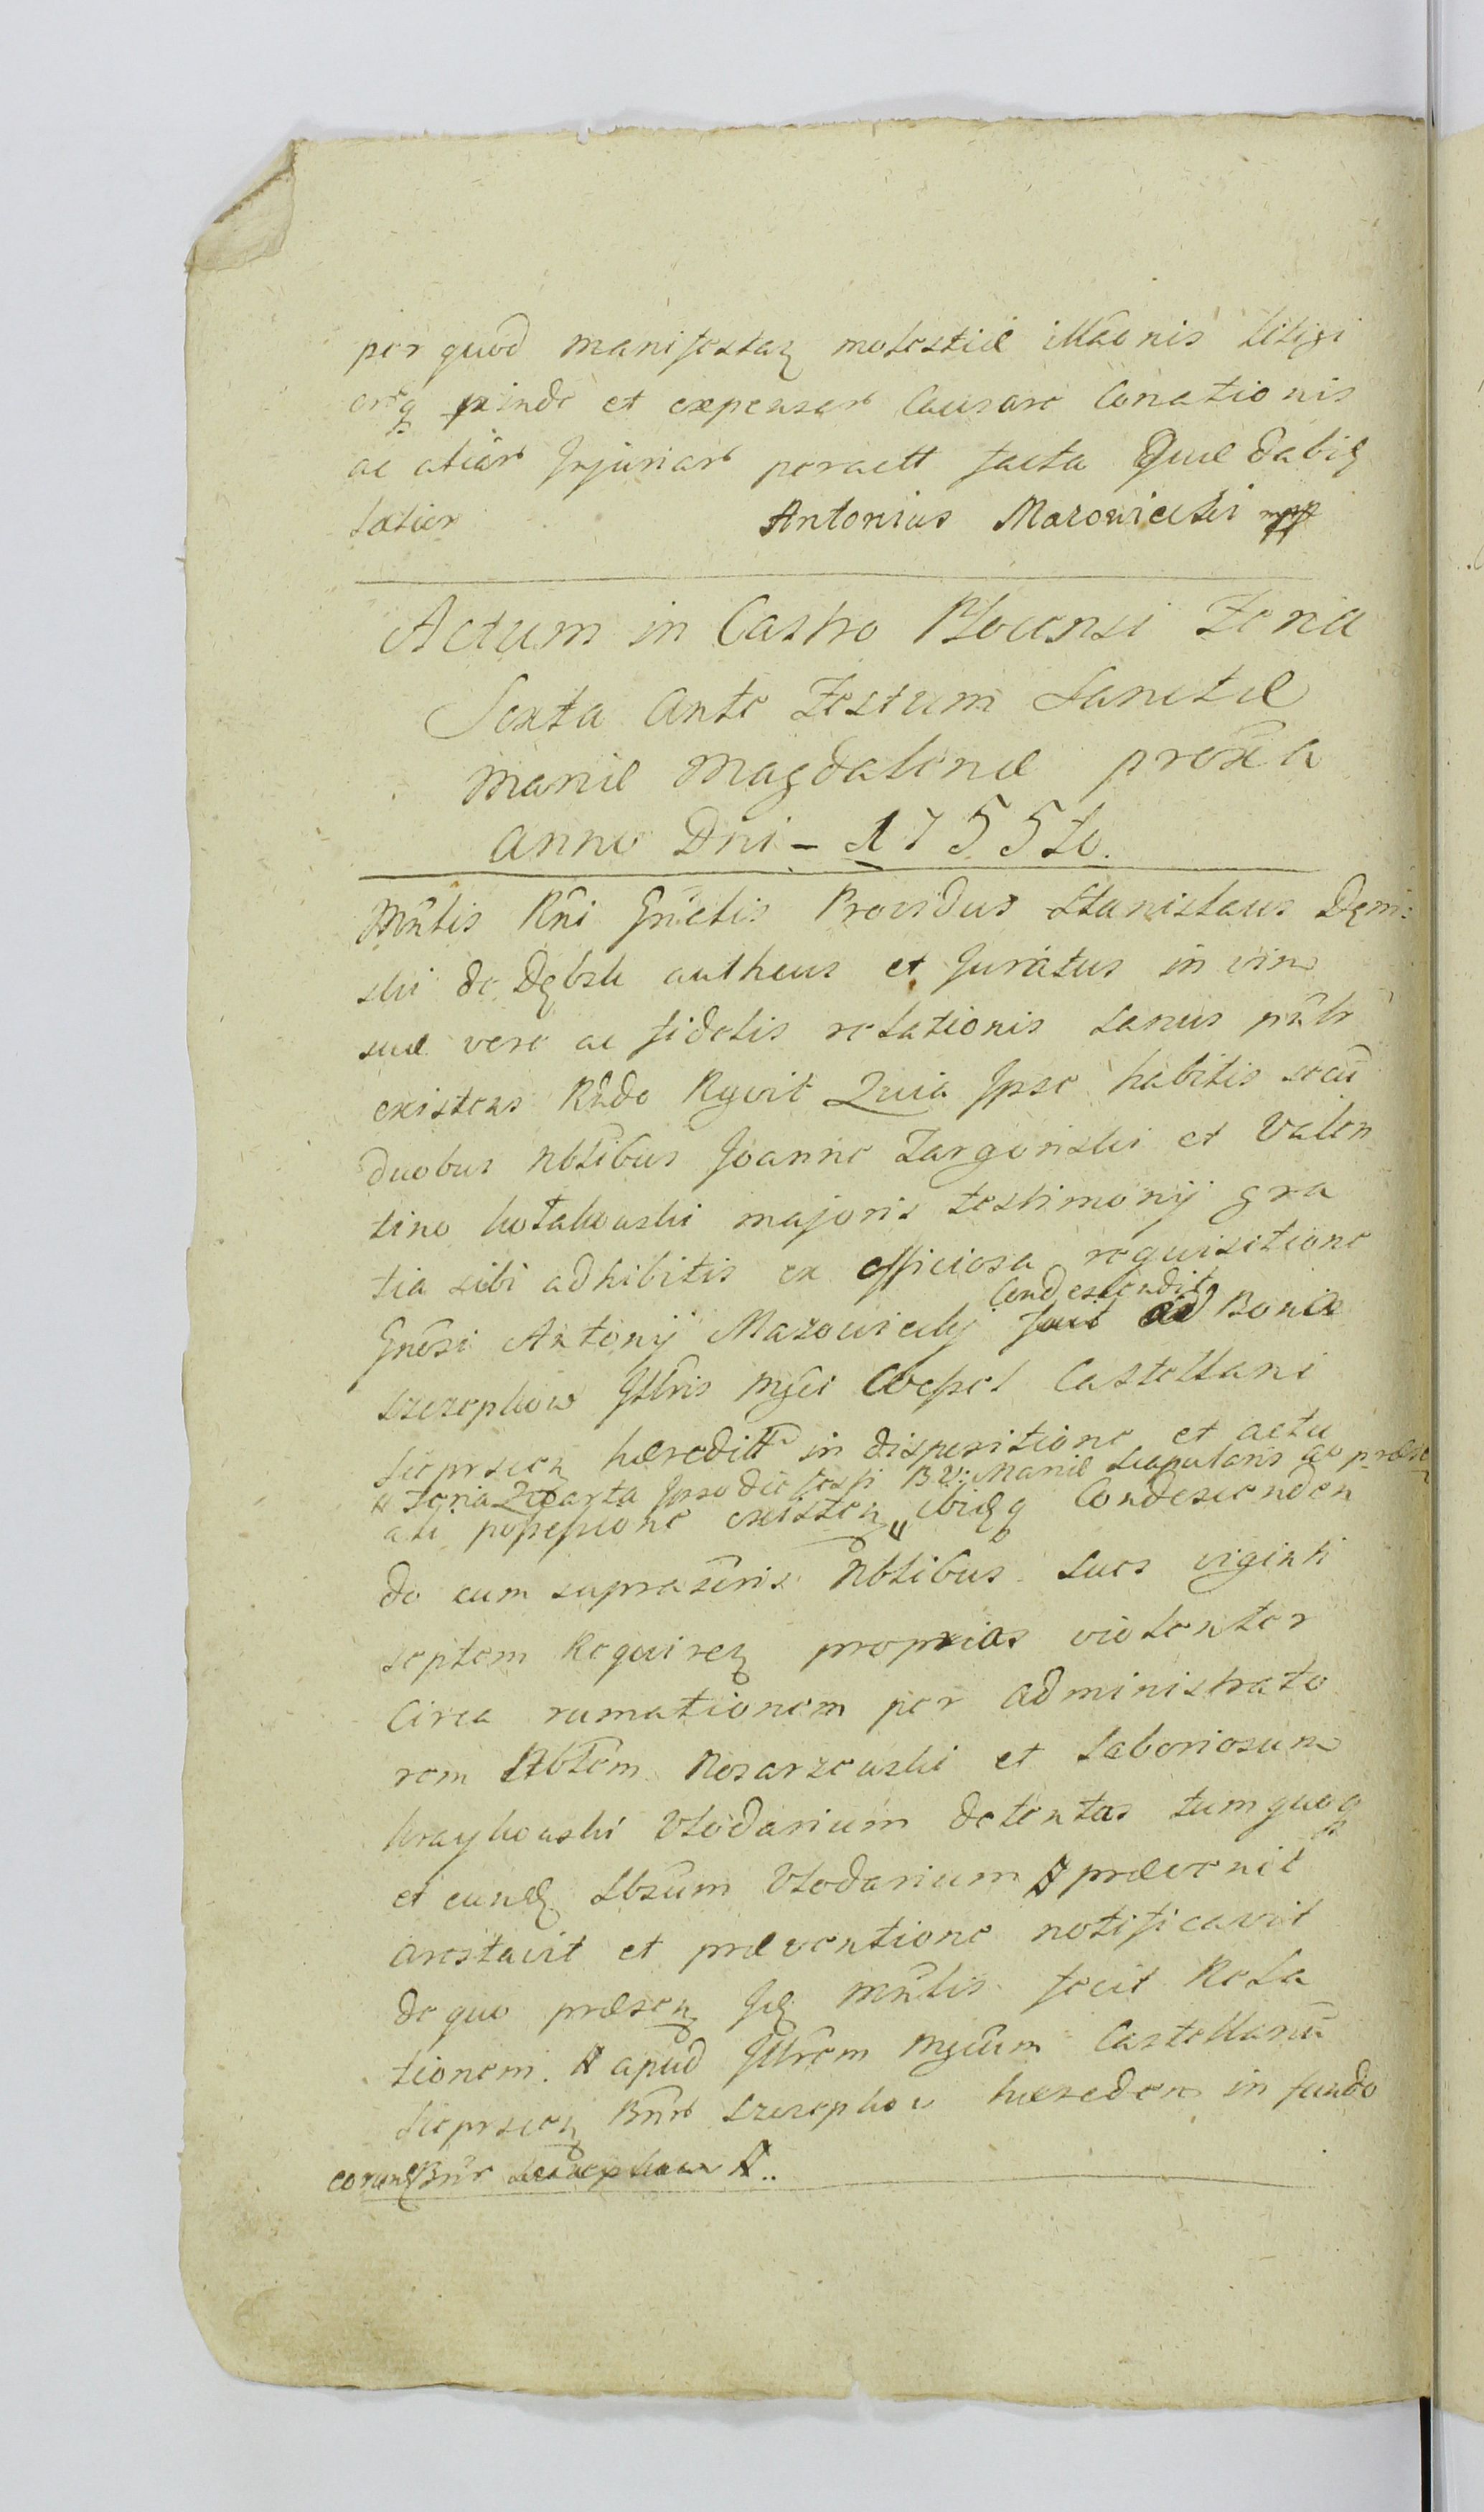 per quod manifestaz molestiæ illaonis litigi
orq inde et expensar Causare Conationis
ac aliar Injuriar peractt facta Quæ dabiz
latius Antonius Mazowiecki mpp
Actum in Castro Plocensi Feria
Sexta ante Festum Sanctæ
Mariæ Magdalenæ proxa
Anno Dni - 1755to.
Mntlis Rni Gnrlis Providus Stanislaus Dęm:
ski de Dębsk autheus et Juratus in vim
suæ veræ ac fidelis relationis sanus pntr
existens Rndo Rgvit Quia Ipse habitis secu
duobus Nblibus Joanne Targonski et Valen
tino Kołakowski majoris testimonij gra
tia sibi adhibitis ex officiosa requisitione
Gnesi Antonij Mazowiecki fuit Condescendit ad Bona
Szczepkow Illris Mgci Castellani
Sieprscen hæreditt in dispositione et actu
" Feria Quarta Ipso die festi B.V: Mariæ Scapularis ac præse
ali possessione existen " ibidq Condescenden
do cum suprascris Nblibus Sues viginti
septem Requirez proprias violenter
Circa rumationem per administrato
rem Nblem Kosarzewski et Laboriosum
Kraykowski Vlodarium detentas tum quoq
et eundz Lbsum Vlodarium prævenit
arestavit et præventione notificavit
de quo præsen Idz Mntlis fecit Rela
tionem. # apud Illrem Mgcum Castellanu
Sieprscen Bnr Szczepkow hæredem in fundo
eorundz Bnr Szczepkow #..